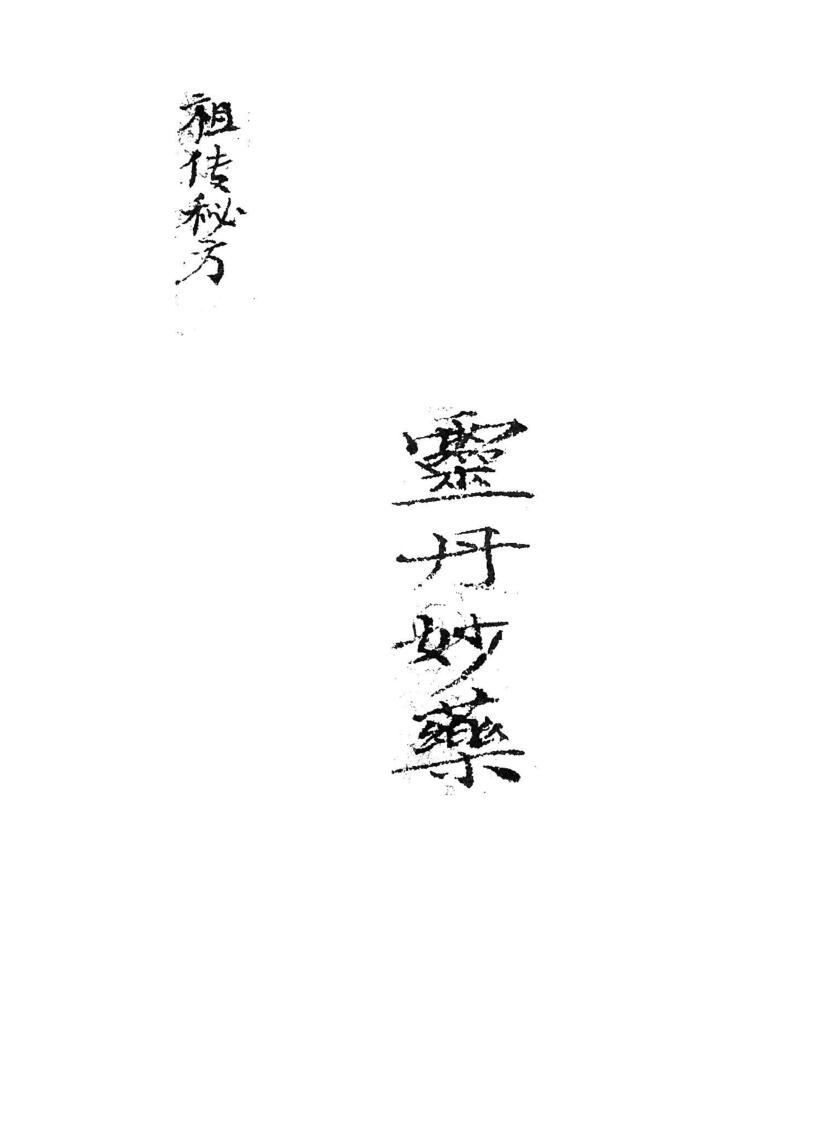 祖传秘方
靈丹妙藥